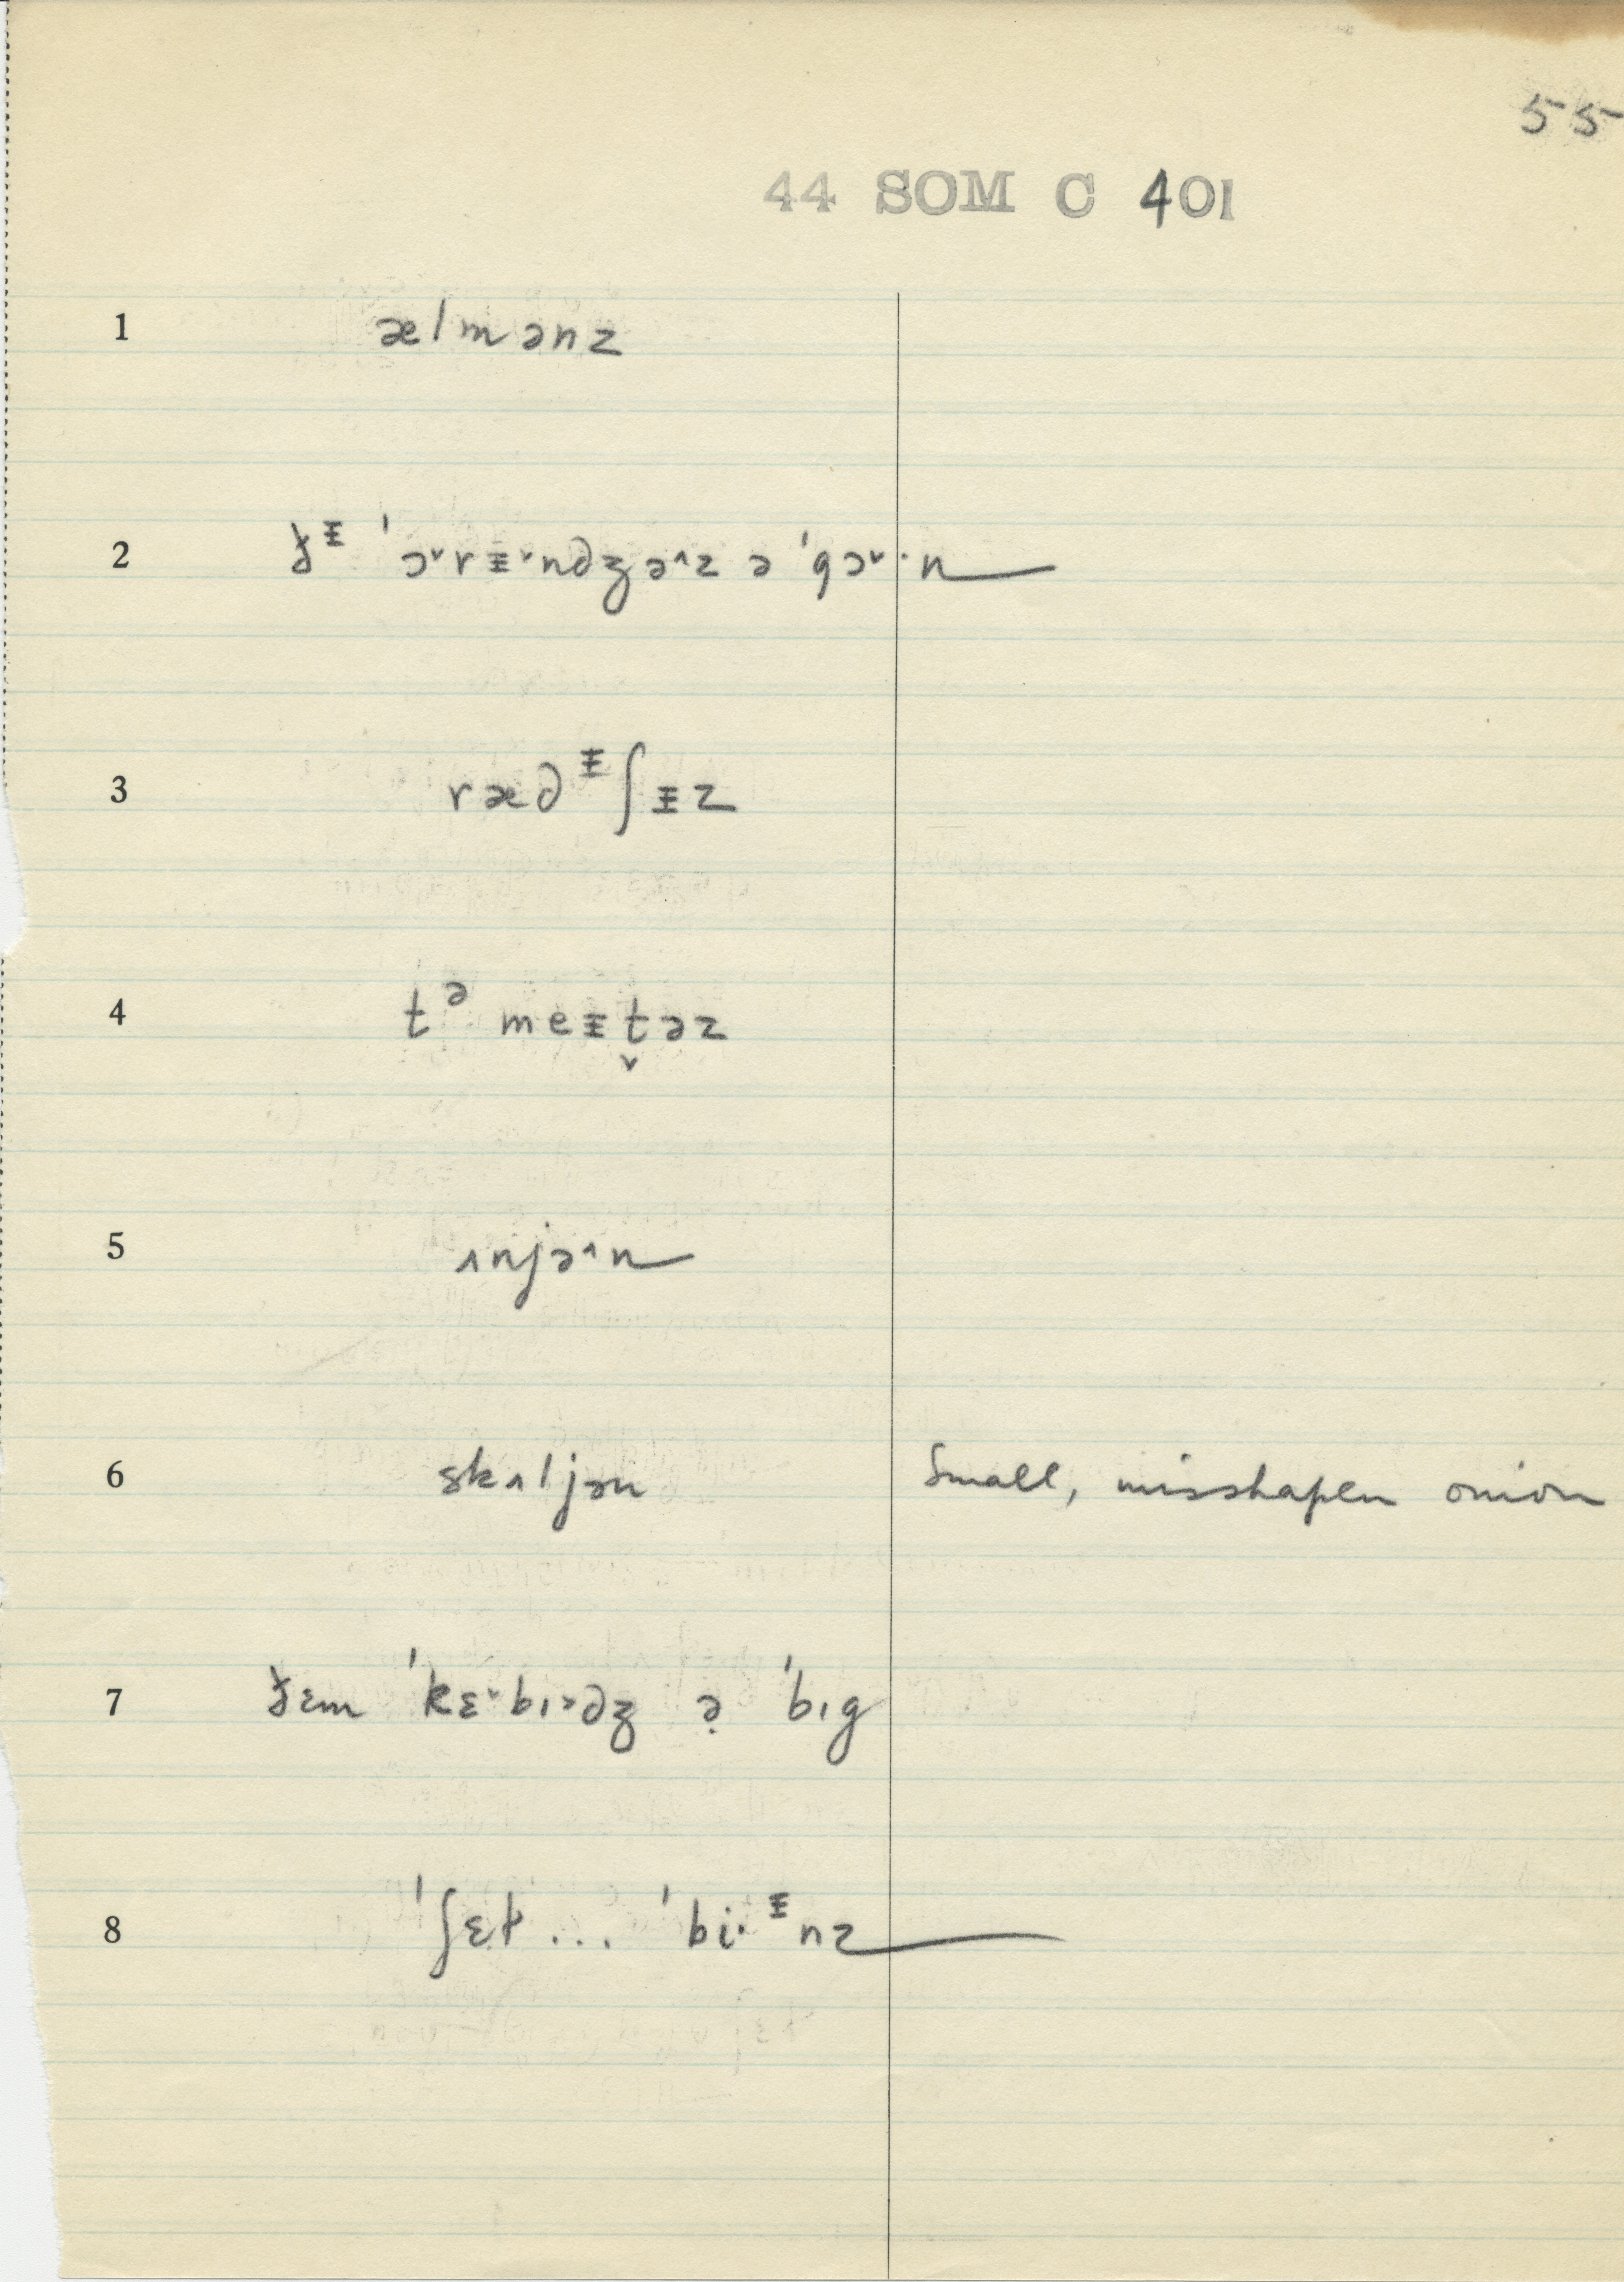 55
44 SOM C 401
1 ælmənz
2 ðᵻ ˈɔ˅rᵻ˅ndʒə˄z ə ˈgɔ˅·n
3 rædᵻʃᵻz
4 tᵊ meᵻt̬əz
5 ʌnjə˄n
6 skʌljən Small, misshapen onion
7 ðɛm ˈkɛ˅bɪ˃dʒ ə̣ ˈbɪg
8 ˈʃɛɫ ... ˈbi·ᵻnz